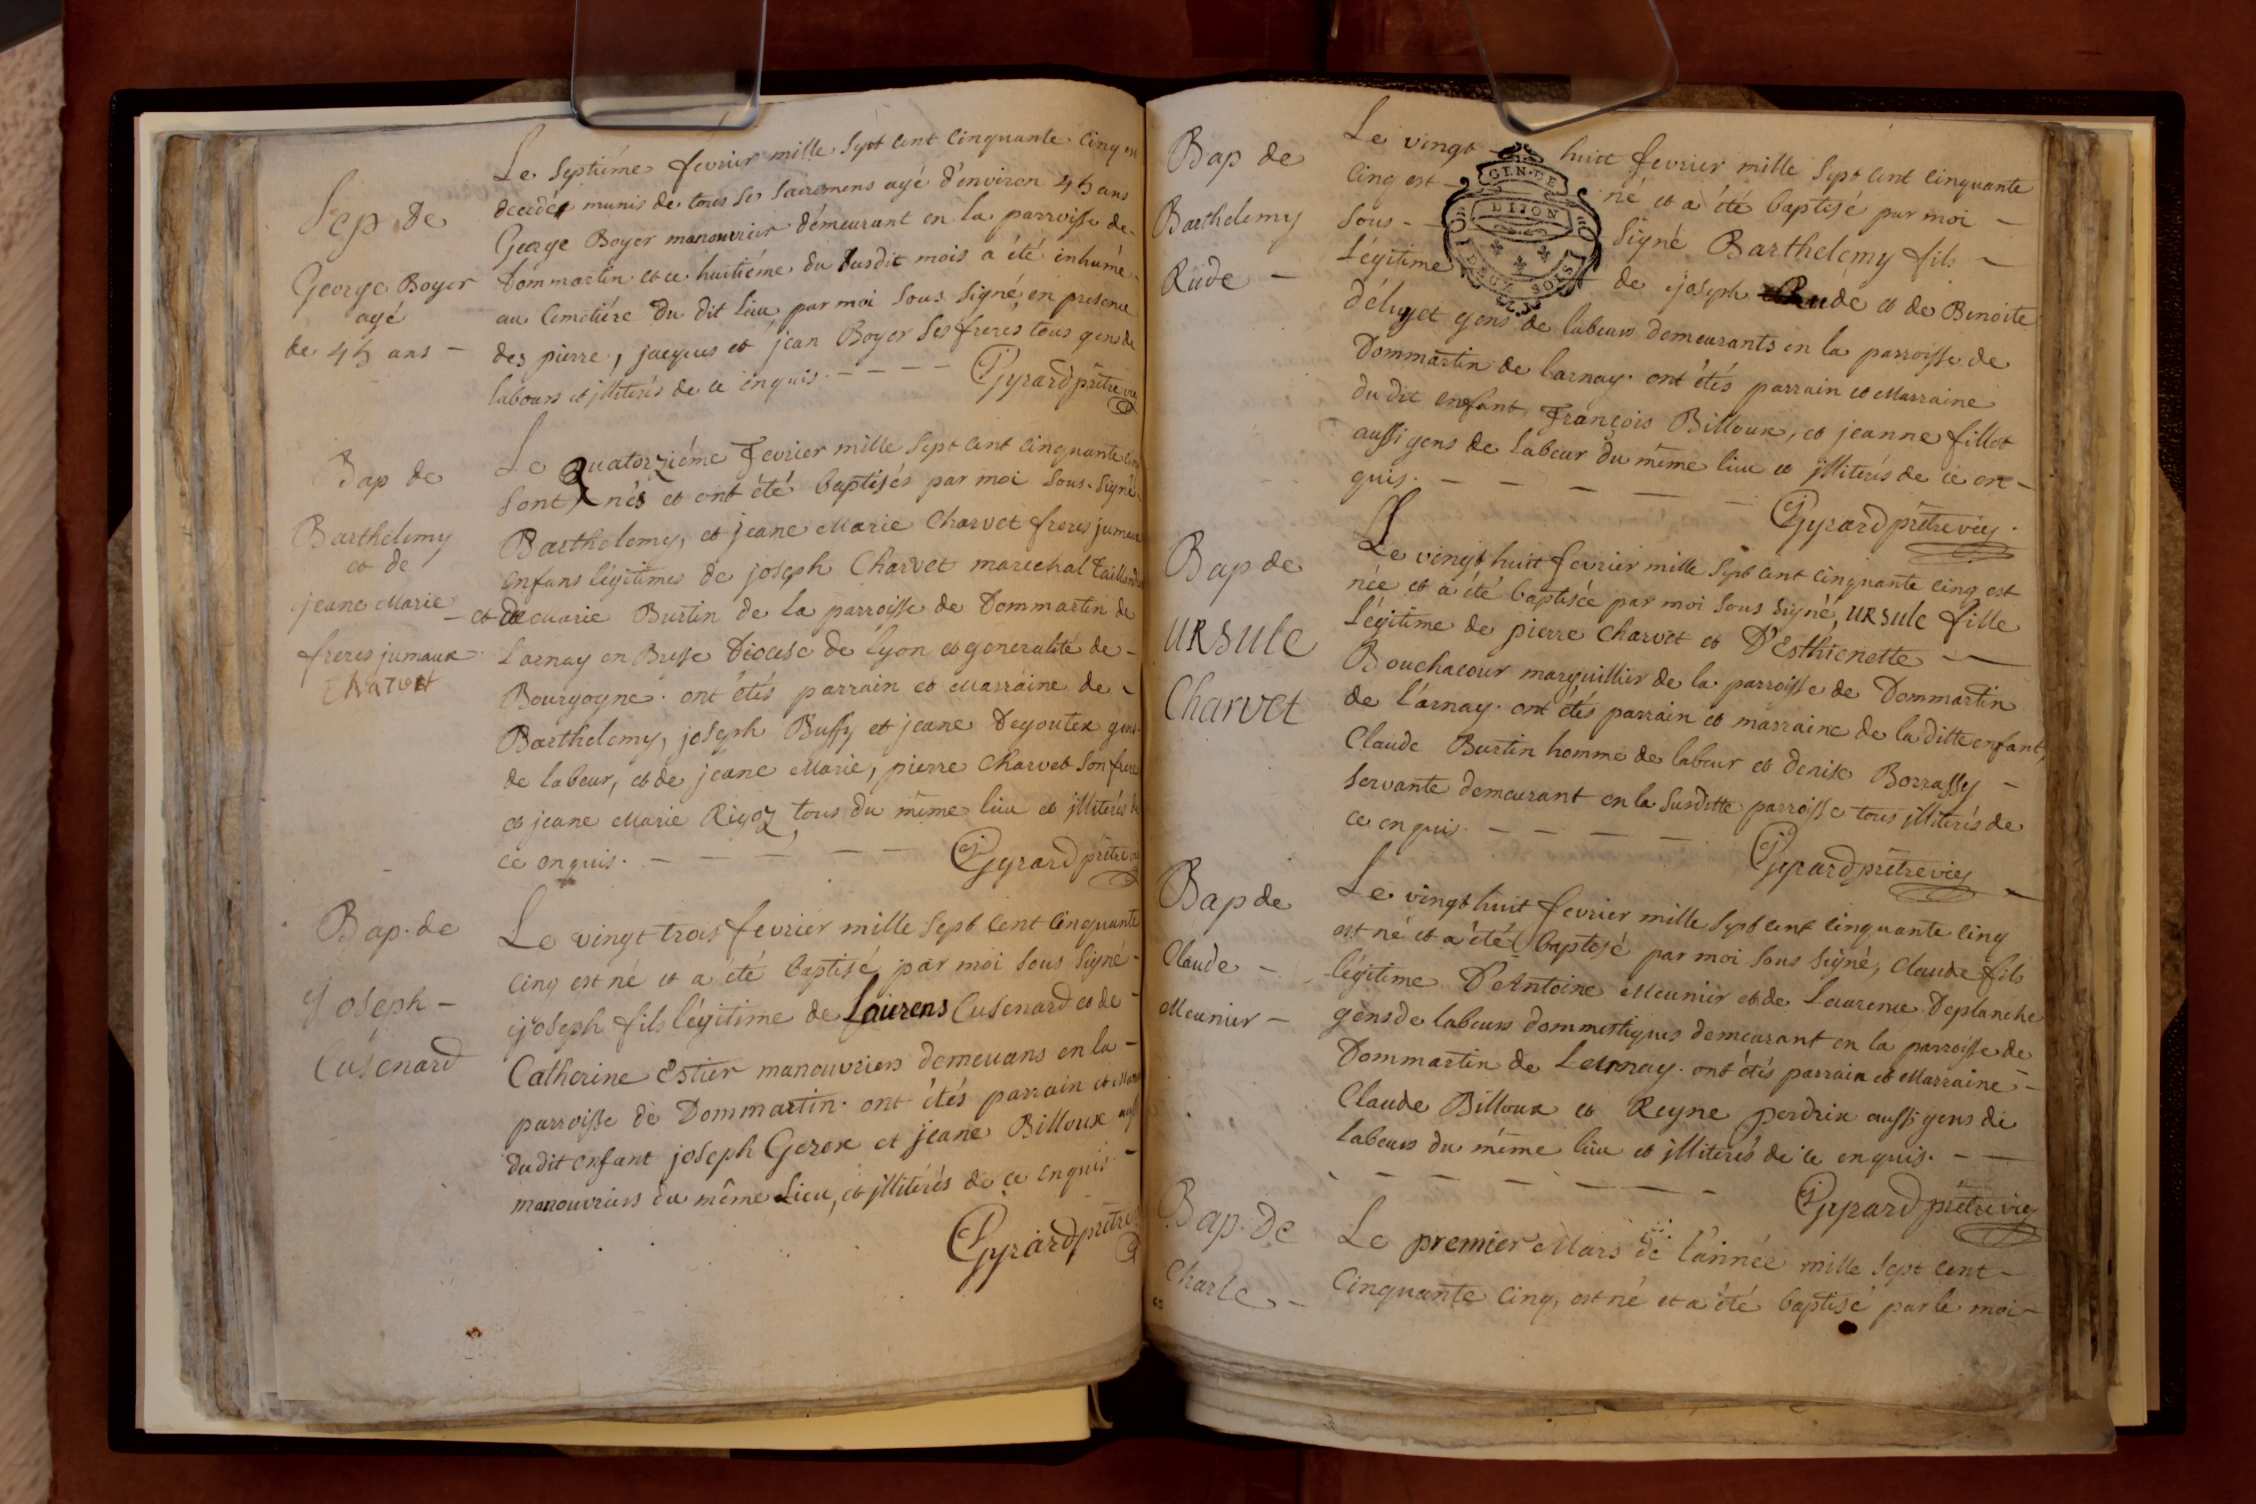 Sep de
George Boyer
agé
de 45 ans -
Le septiéme fevrier mille sept cent cinquante cinq est
decedé munis de tous ses sacremens agé d'environ 45 ans
George Boyer manouvrier démeurant en la parroisse de-
Dommartin et ce huitiéme du susdit mois a été inhumé-
au cemetiére du dit lieu par moi sous signé, en presence
des pierre, jacques et jean Boyer ses freres tous gens de
labours et jlliterés de ce enquis. - - - -
Gyrard prêtre vic
Bap de
Barthelemy
et de
jeane Marie
freres jumaux
Charvet
Le Quatorziéme Fevrier mille sept cent cinquante cinq
sont nés et ont été baptisés par moi sous-signé
Barthelemy, et jeane Marie Charvet freres jumeaux
enfans légitimes de joseph Charvet marechal Tailland
- et de Marie Burtin de la parroisse de Dommartin de
Larnay en Bresse Diocese de Lyon et generalité de-
Bourgogne. ont étés parrain et Marraine de -
Barthelemy, joseph Buffy et jeane Degoutex gens
de labeur, et de jeane Marie, pierre Charvet son frere
et jeane Marie Rigoz, tous du même lieu et jlliterés de
ce enquis. - - - - -
Gyrard prêtre vic
Bap. de
Joseph -
Cusenard
Le vingt trois fevrier mille sept cent cinquante
cinq est né et a été baptisé par moi sous signé-
joseph fils légitime de Laurens Cusenard et de-
Catherine Estier manouvriers demeurans en la-
parroisse de Dommartin. ont étés parrain et Marr
dudit enfant joseph Gerox et jeane Billoux aussi
manouvriers du même Lieu, et jlliterés de ce enquis -
Gyrard prêtre
Bap de
Barthelemy
Rude -
GEN. DE
DIJON
DEUX SOLS
Le vingt - huit fevrier mille sept cent cinquante
cinq est - né et a été baptisé par moi -
sous - signé Barthelemy fils -
Légitime de joseph Rude et de Benoite
Déluget gens de labeurs demeurants en la parroisse de
Dommartin de larnay. ont étés parrain et Marraine
du dit enfant, François Billoux, et jeanne fillot
aussi gens de labeur du même lieu et jlliterés de ce en-
quis. - - - - -
Gyrard prêtre vic.
Bap de
URsule
Charvet
Le vingt huit fevrier mille sept cent cinquante cinq est
née et a été baptisée par moi sous signé, URsule fille
Légitime de pierre Charvet et D'Esthienette -
Bouchacour marguillier de la parroisse de Dommartin
de l'arnay. ont étés parrain et marraine de la ditte enfant,
Claude Burtin homme de labeur et denise Borrassy -
servante demeurant en la susditte parroisse tous jlliterés de
ce enquis. - - - -
Gyrard prêtre vic
Bap de
Claude -
Meunier -
Le vingt huit fevrier mille sept cent cinquante cinq
est né et a été baptisé par moi sous signé, Claude fils
légitime D'Antoine Meunier et de Laurence Deplanche
gens de labeurs dommestiques demeurant en la parroisse de
Dommartin de Larnay. ont étés parrain et Marraine-
Claude Billoux et Reyne perdrix aussi gens de
labeurs du même lieu et jlliterés de ce enquis. - -
- - - - - - -
Gyrard prêtre vic
Bap. De
Charle -
Le premier Mars de l'année mille sept cent-
cinquante cinq, est né et a été baptisé par le moi-